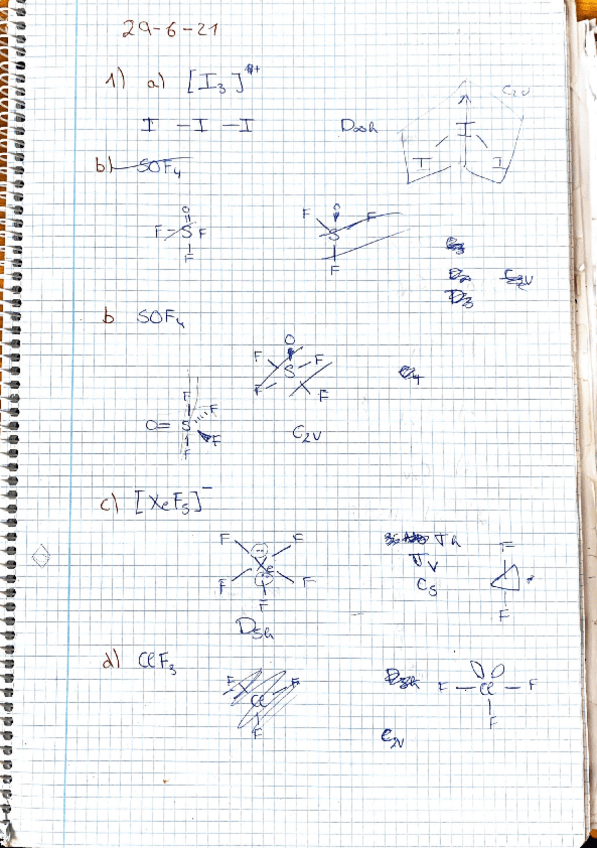 29-6-21
1) a) [I₃]⁺
I - I - I D∞h
C₂ᵥ
I
I I
b) SOF₄
O
F-S F
F
F O F
S
F
C₂ᵥ
D₃
b SOF₄
O
F S F
F F
F
O= S F
F
F
C₂ᵥ
c) [XeF₅]⁻
F F
Xe
F F
F
D₅h
σh
σᵥ
Cs
F
F
d) ClF₃
F F
Cl
F
D₃h
F - Cl - F
F
C₂ᵥ